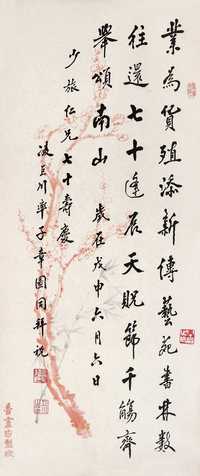 業為貨殖添新傳藝苑書林數
往還七十逢辰天貺節千觴齊
舉頌南山 歲在戊申六月六日
少旅仁兄七十壽慶
凌巨川率子章園同拜祝